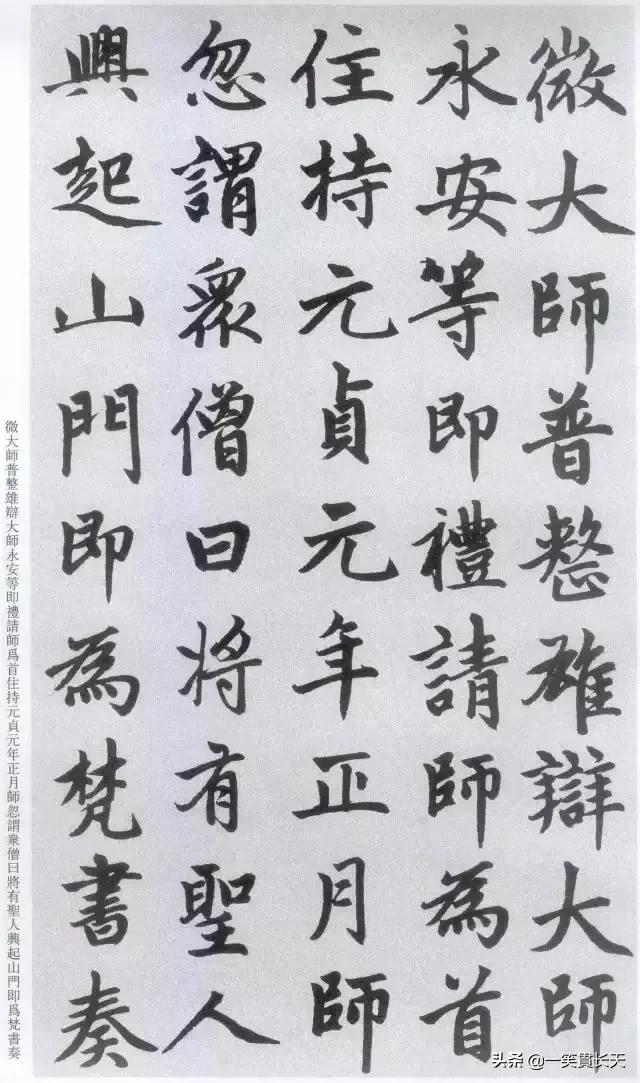 微大師普整雄辯大師
永安等即禮請師為首
住持元貞元年正月師
忽謂衆僧曰將有聖人
興起山門即為梵書奏
微大師普整雄辯大師永安等即禮請師爲首住持元貞元年正月師忽謂衆僧曰將有聖人興起山門即爲梵書奏
头条 @一笑貫长天